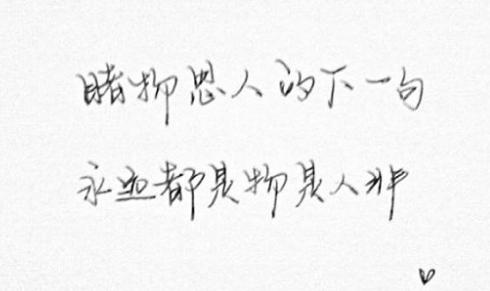 睹物思人的下一句
永远都是物是人非